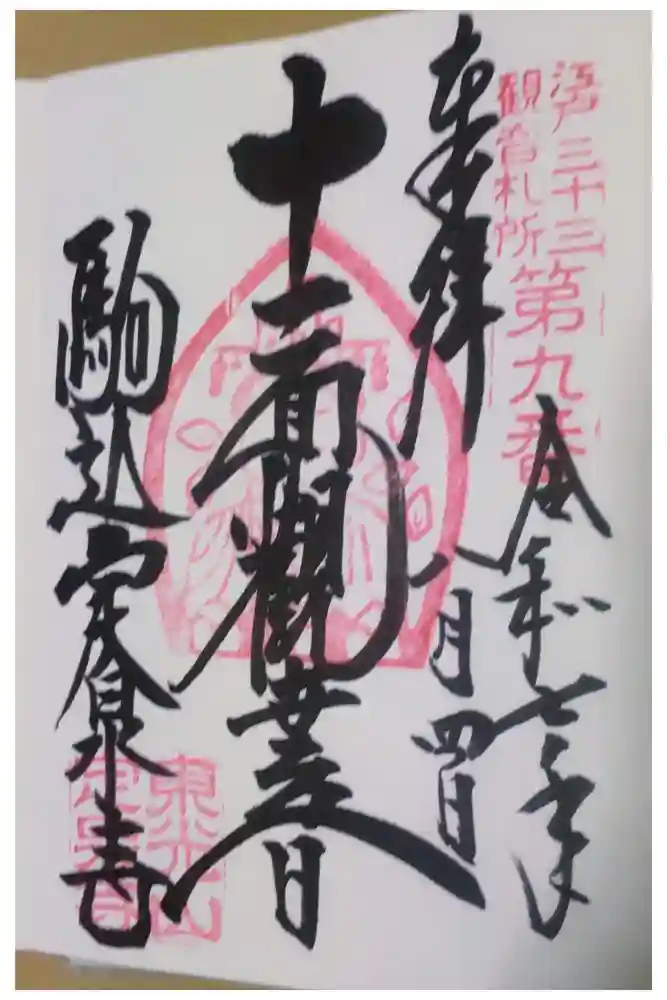 江戸三十三
観音札所
第九番
奉拝
令和七年
八月四日
十一面觀世音
駒込定泉寺
東光山
定泉寺